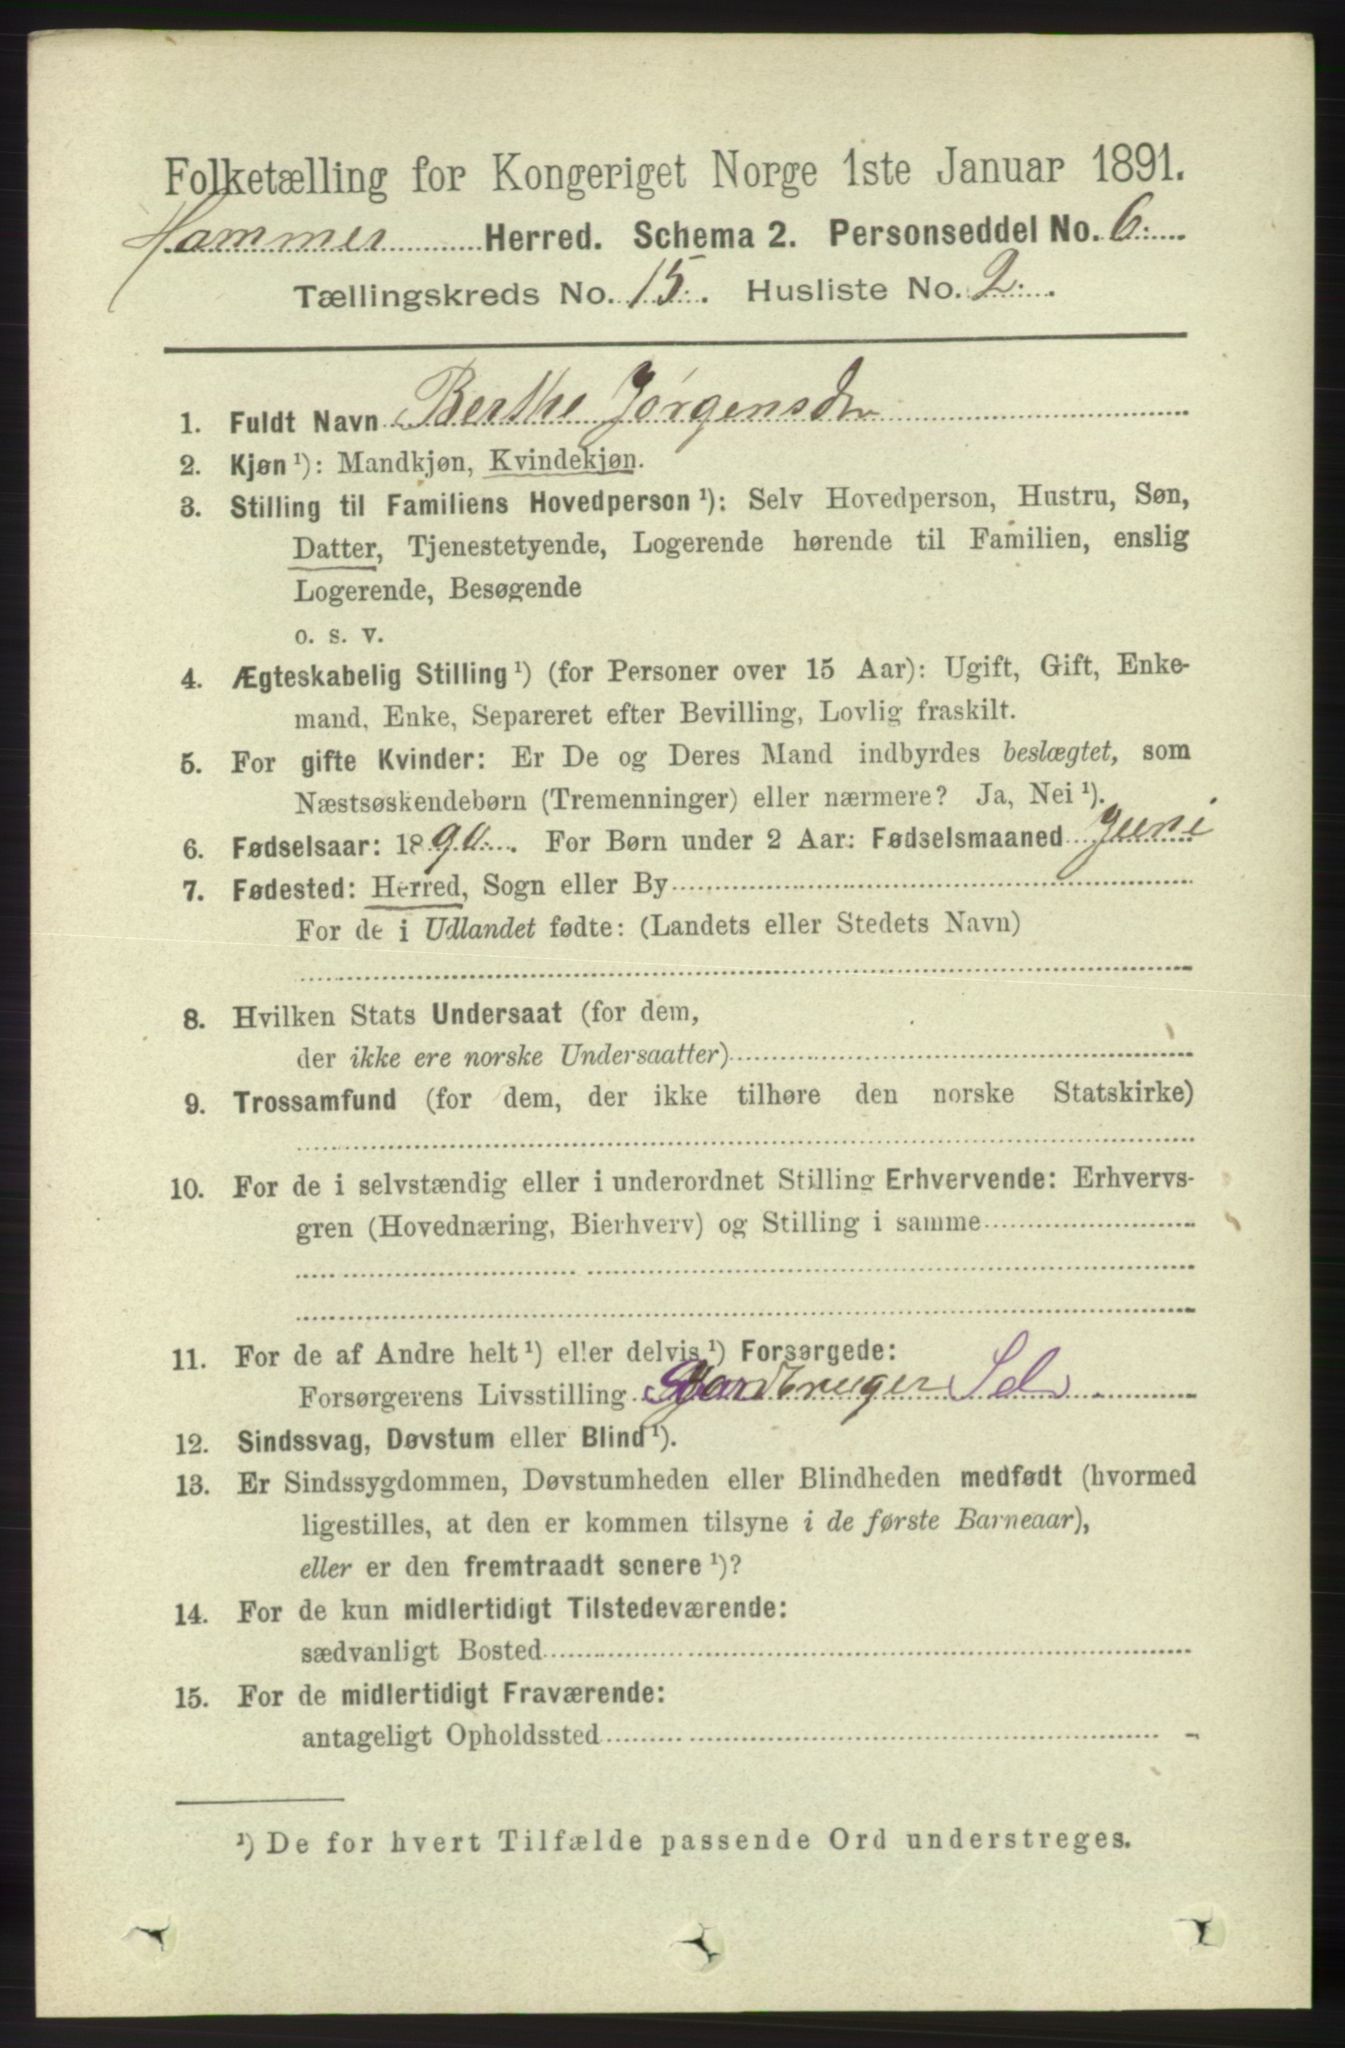 Folketælling for Kongeriget Norge 1ste Januar 1891.
Hammer Herred. Schema 2. Personseddel No. 6.
Tællingskreds No. 15. Husliste No. 2.
1. Fuldt Navn Berthe Jørgensdr
2. Kjøn ¹): Mandkjøn, Kvindekjøn.
3. Stilling til Familiens Hovedperson ¹): Selv Hovedperson, Hustru, Søn,
Datter, Tjenestetyende, Logerende hørende til Familien, enslig
Logerende, Besøgende
o. s. v.
4. Ægteskabelig Stilling ¹) (for Personer over 15 Aar): Ugift, Gift, Enke-
mand, Enke, Separeret efter Bevilling, Lovlig fraskilt.
5. For gifte Kvinder: Er De og Deres Mand indbyrdes beslægtet, som
Næstsøskendebørn (Tremenninger) eller nærmere? Ja, Nei ¹).
6. Fødselsaar: 1890. For Børn under 2 Aar: Fødselsmaaned Juni
7. Fødested: Herred, Sogn eller By
For de i Udlandet fødte: (Landets eller Stedets Navn)
8. Hvilken Stats Undersaat (for dem,
der ikke ere norske Undersaatter)
9. Trossamfund (for dem, der ikke tilhøre den norske Statskirke)
10. For de i selvstændig eller i underordnet Stilling Erhvervende: Erhvervs-
gren (Hovednæring, Bierhverv) og Stilling i samme
11. For de af Andre helt ¹) eller delvis ¹) Forsørgede:
Forsørgerens Livsstilling Gaardbruger Sel
12. Sindssvag, Døvstum eller Blind ¹).
13. Er Sindssygdommen, Døvstumheden eller Blindheden medfødt (hvormed
ligestilles, at den er kommen tilsyne i de første Barneaar),
eller er den fremtraadt senere ¹)?
14. For de kun midlertidigt Tilstedeværende:
sædvanligt Bosted
15. For de midlertidigt Fraværende:
antageligt Opholdssted
¹) De for hvert Tilfælde passende Ord understreges.